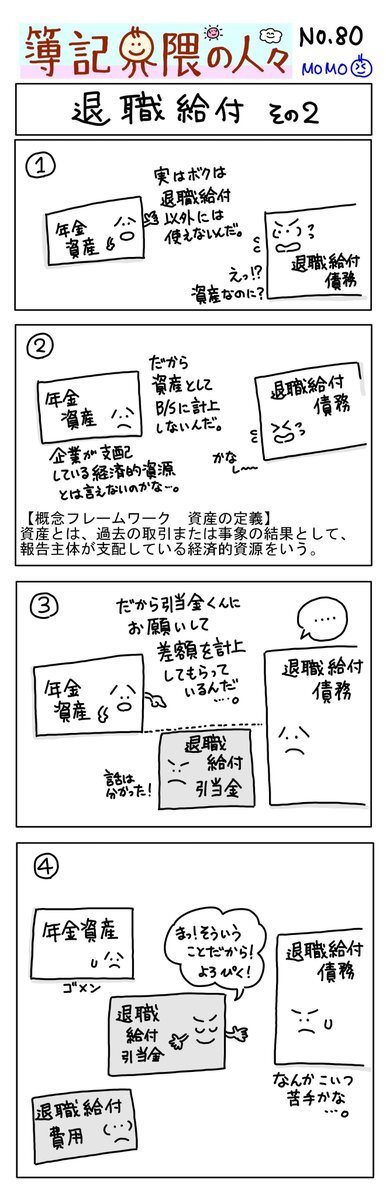 簿記界隈の人々
No.80
MOMO
退職給付 その2
①
実はボクは
退職給付
以外には
使えないんだ。
年金
資産
えっ!?
資産なのに?
退職給付
債務
②
だから
資産として
B/Sに計上
しないんだ。
年金
資産
企業が支配
している経済的資源
とは言えないのかな…。
退職給付
債務
かな
し〜
【概念フレームワーク 資産の定義】
資産とは、過去の取引または事象の結果として、
報告主体が支配している経済的資源をいう。
③
だから引当金くんに
お願いして
差額を計上
してもらって
いるんだ
…。
年金
資産
‥‥
退職給付
債務
退職
給付
引当金
話は
分かった!
④
年金資産
ゴメン
まっ!そういう
ことだから!
よろぴく!
退職給付
債務
退職
給付
引当金
なんかこいつ
苦手かな
…。
退職給付
費用